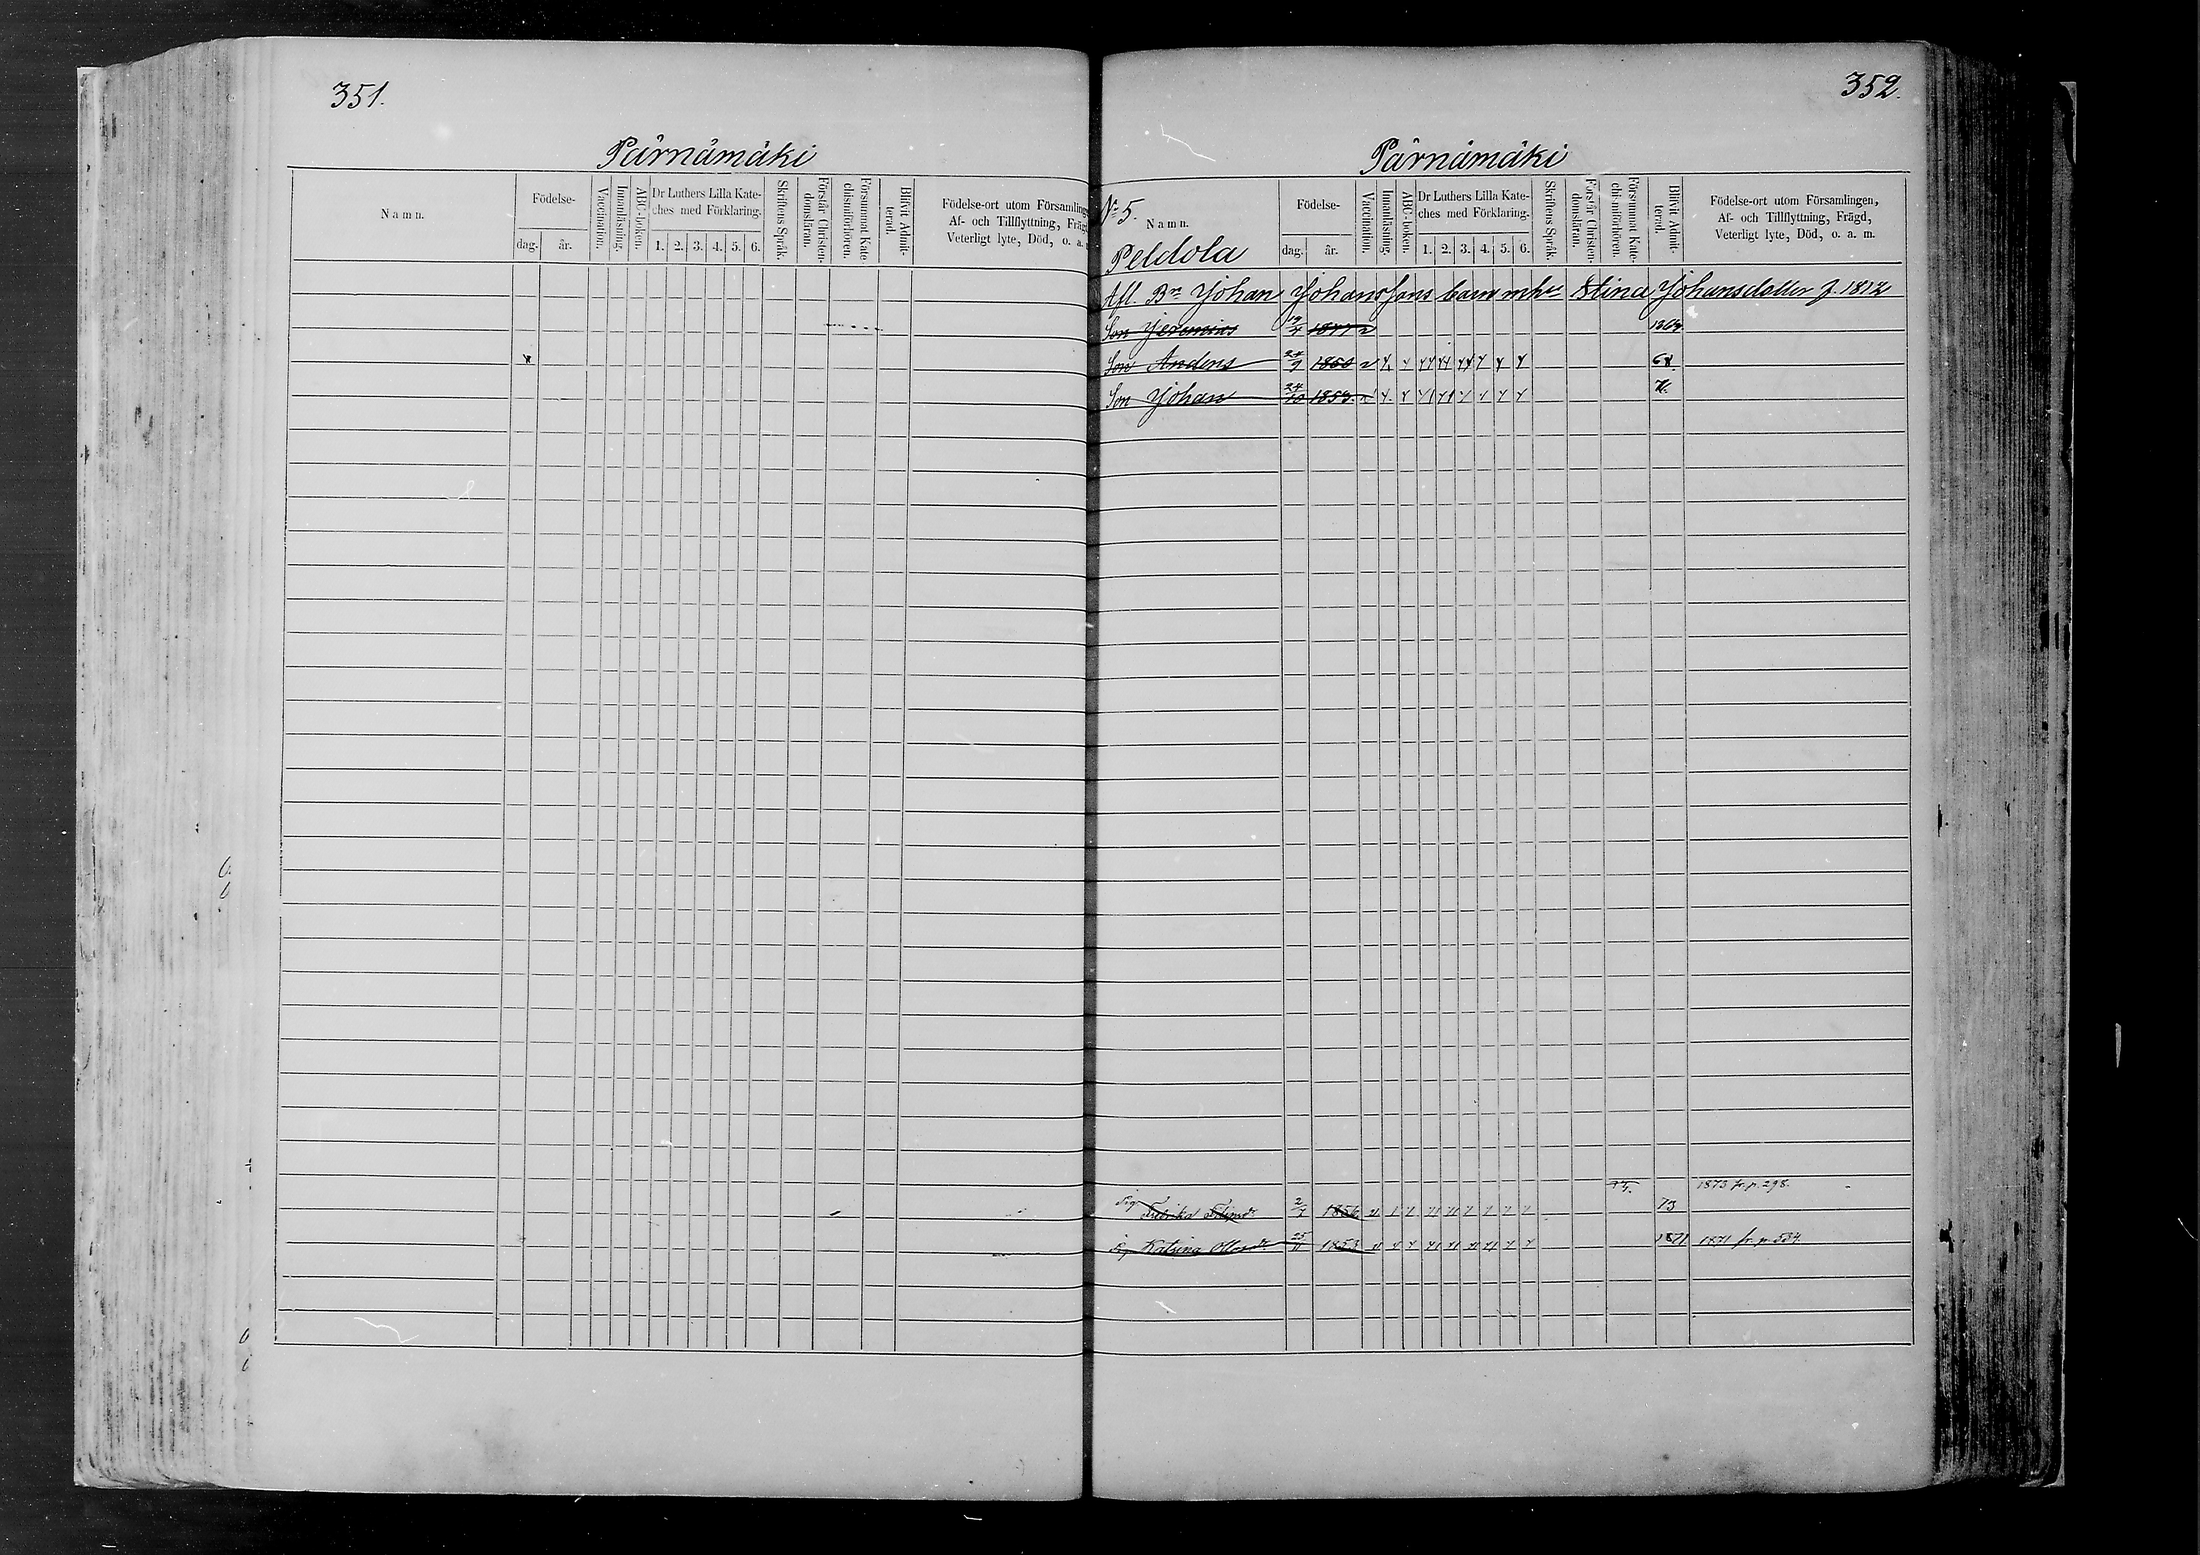 351.
Pärnämäki
Namn.
Födelse-
dag. år.
Vaccination.
Innanläsning.
ABC-boken.
Dr Luthers Lilla Kate-
ches med Förklaring.
1. 2. 3. 4. 5. 6.
Skriftens Språk.
Förstår Christen-
domsläran.
Försummat Kate-
chismiförhören.
Blifvit Admit-
terad.
Födelse-ort utom Församling
Af- och Tillflyttning, Fräg
Veterligt lyte, Död, o. a.
352.
Pärnämäki
No 5.
Namn.
Peldola
Födelse-
dag. år.
Vaccination.
Innanläsning.
ABC-boken.
Dr Luthers Lilla Kate-
ches med Förklaring.
1. 2. 3. 4. 5. 6.
Skriftens Språk.
Förstår Christen-
domsläran.
Försummat Kate-
chismiförhören.
Blifvit Admit-
terad.
Födelse-ort utom Församlingen,
Af- och Tillflyttning, Frägd,
Veterligt lyte, Död, o. a. m.
Afl. Bn Johan Johanssons barn m hu Stina Johansdotter f. 1812
Son Jeremias 19/4 1847
Son Anders 24/9 1850 68.
Son Johan 24/10 1853
1873 fr. p. 298.
Pig. 2/7 1856 73
Pig Katrina 25/11 1853 1871 1871 fr. p. 534.